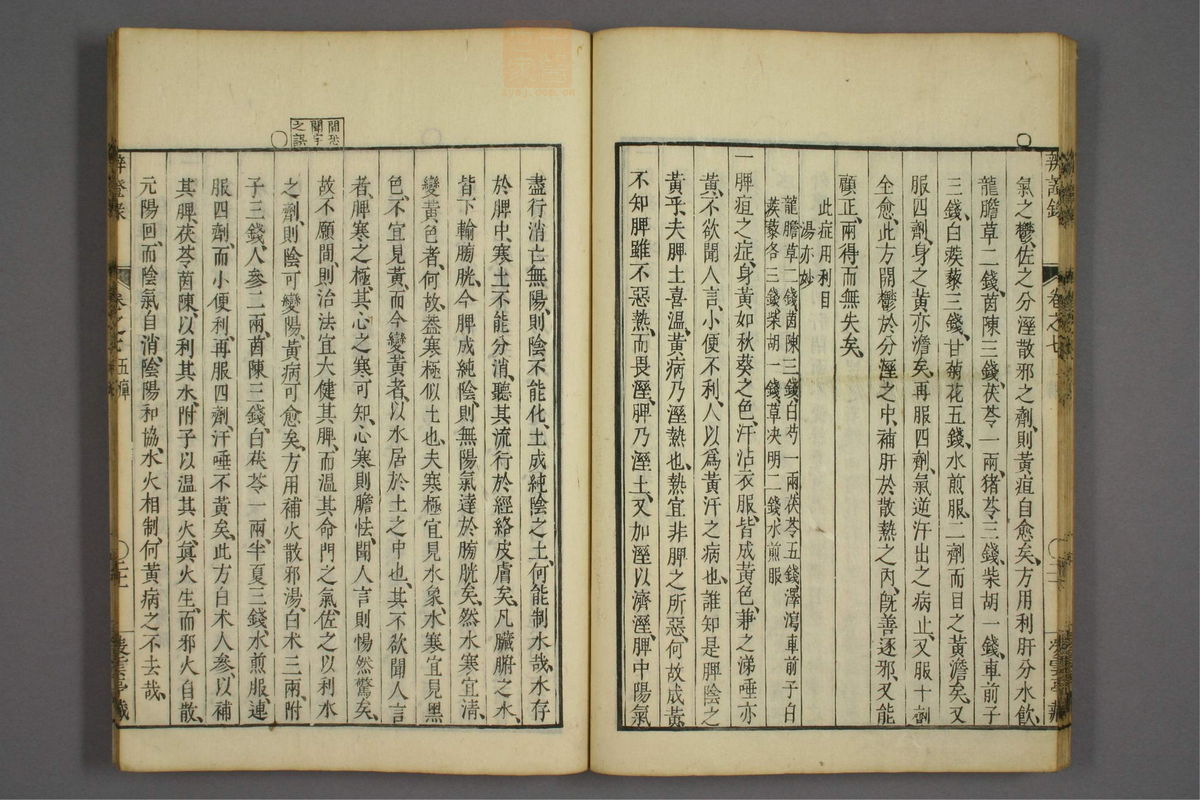 氣之鬱、佐之分溼散邪之劑、則黃疸自愈矣、方用利肝分水飮、
龍膽草二錢、茵陳三錢、茯苓一兩、猪苓三錢、柴胡一錢、車前子
三錢、白蒺藜三錢、甘菊花五錢、水煎服、二劑而目之黃澹矣、又
服四劑、身之黃亦澹矣、再服四劑、氣逆汗出之病止、又服十劑
全愈、此方開鬱於分溼之中、補肝於散熱之內、旣善逐邪、又能
顧正、兩得而無失矣、
此症用利目
湯亦妙
龍膽草二錢茵陳三錢白芍一兩茯苓五錢澤瀉車前子白
蒺藜各三錢柴胡一錢草决明二錢水煎服
一脾疸之症、身黃如秋葵之色、汗沾衣服、皆成黃色、兼之涕唾亦
黃、不欲聞人言、小便不利、人以爲黃汗之病也、誰知是脾陰之
黃乎、夫脾土喜溫、黃病乃溼熱也、熱宜非脾之所惡、何故成黃
不知脾雖不惡熱、而畏溼、脾乃溼土、又加溼以濟溼、脾中陽氣
間恐
聞字
之誤
盡行消亡、無陽、則陰不能化、土成純陰之土、何能制水哉、水存
於脾中、寒土不能分消、聽其流行於經絡皮膚矣、凡臟腑之水、
皆下輸膀胱、今脾成純陰、則無陽氣達於膀胱矣、然水寒宜清、
變黃色者、何故、蓋寒極似土也、夫寒極宜見水象、水寒宜見黑
色、不宜見黃、而今變黃者、以水居於土之中也、其不欲聞人言
者、脾寒之極、其心之寒可知、心寒則膽怯、聞人言則惕然驚矣、
故不願間、則治法宜大健其脾、而溫其命門之氣、佐之以利水
之劑、則陰可變陽、黃病可愈矣、方用補火散邪湯、白术三兩、附
子三錢、人參二兩、茵陳三錢、白茯苓一兩、半夏三錢、水煎服、連
服四劑、而小便利、再服四劑、汗唾不黃矣、此方白术人參、以補
其脾、茯苓茵陳、以利其水、附子以溫其火、眞火生、而邪火自散、
元陽回、而陰氣自消、陰陽和協、水火相制、何黃病之不去哉、
卷之七 五疸